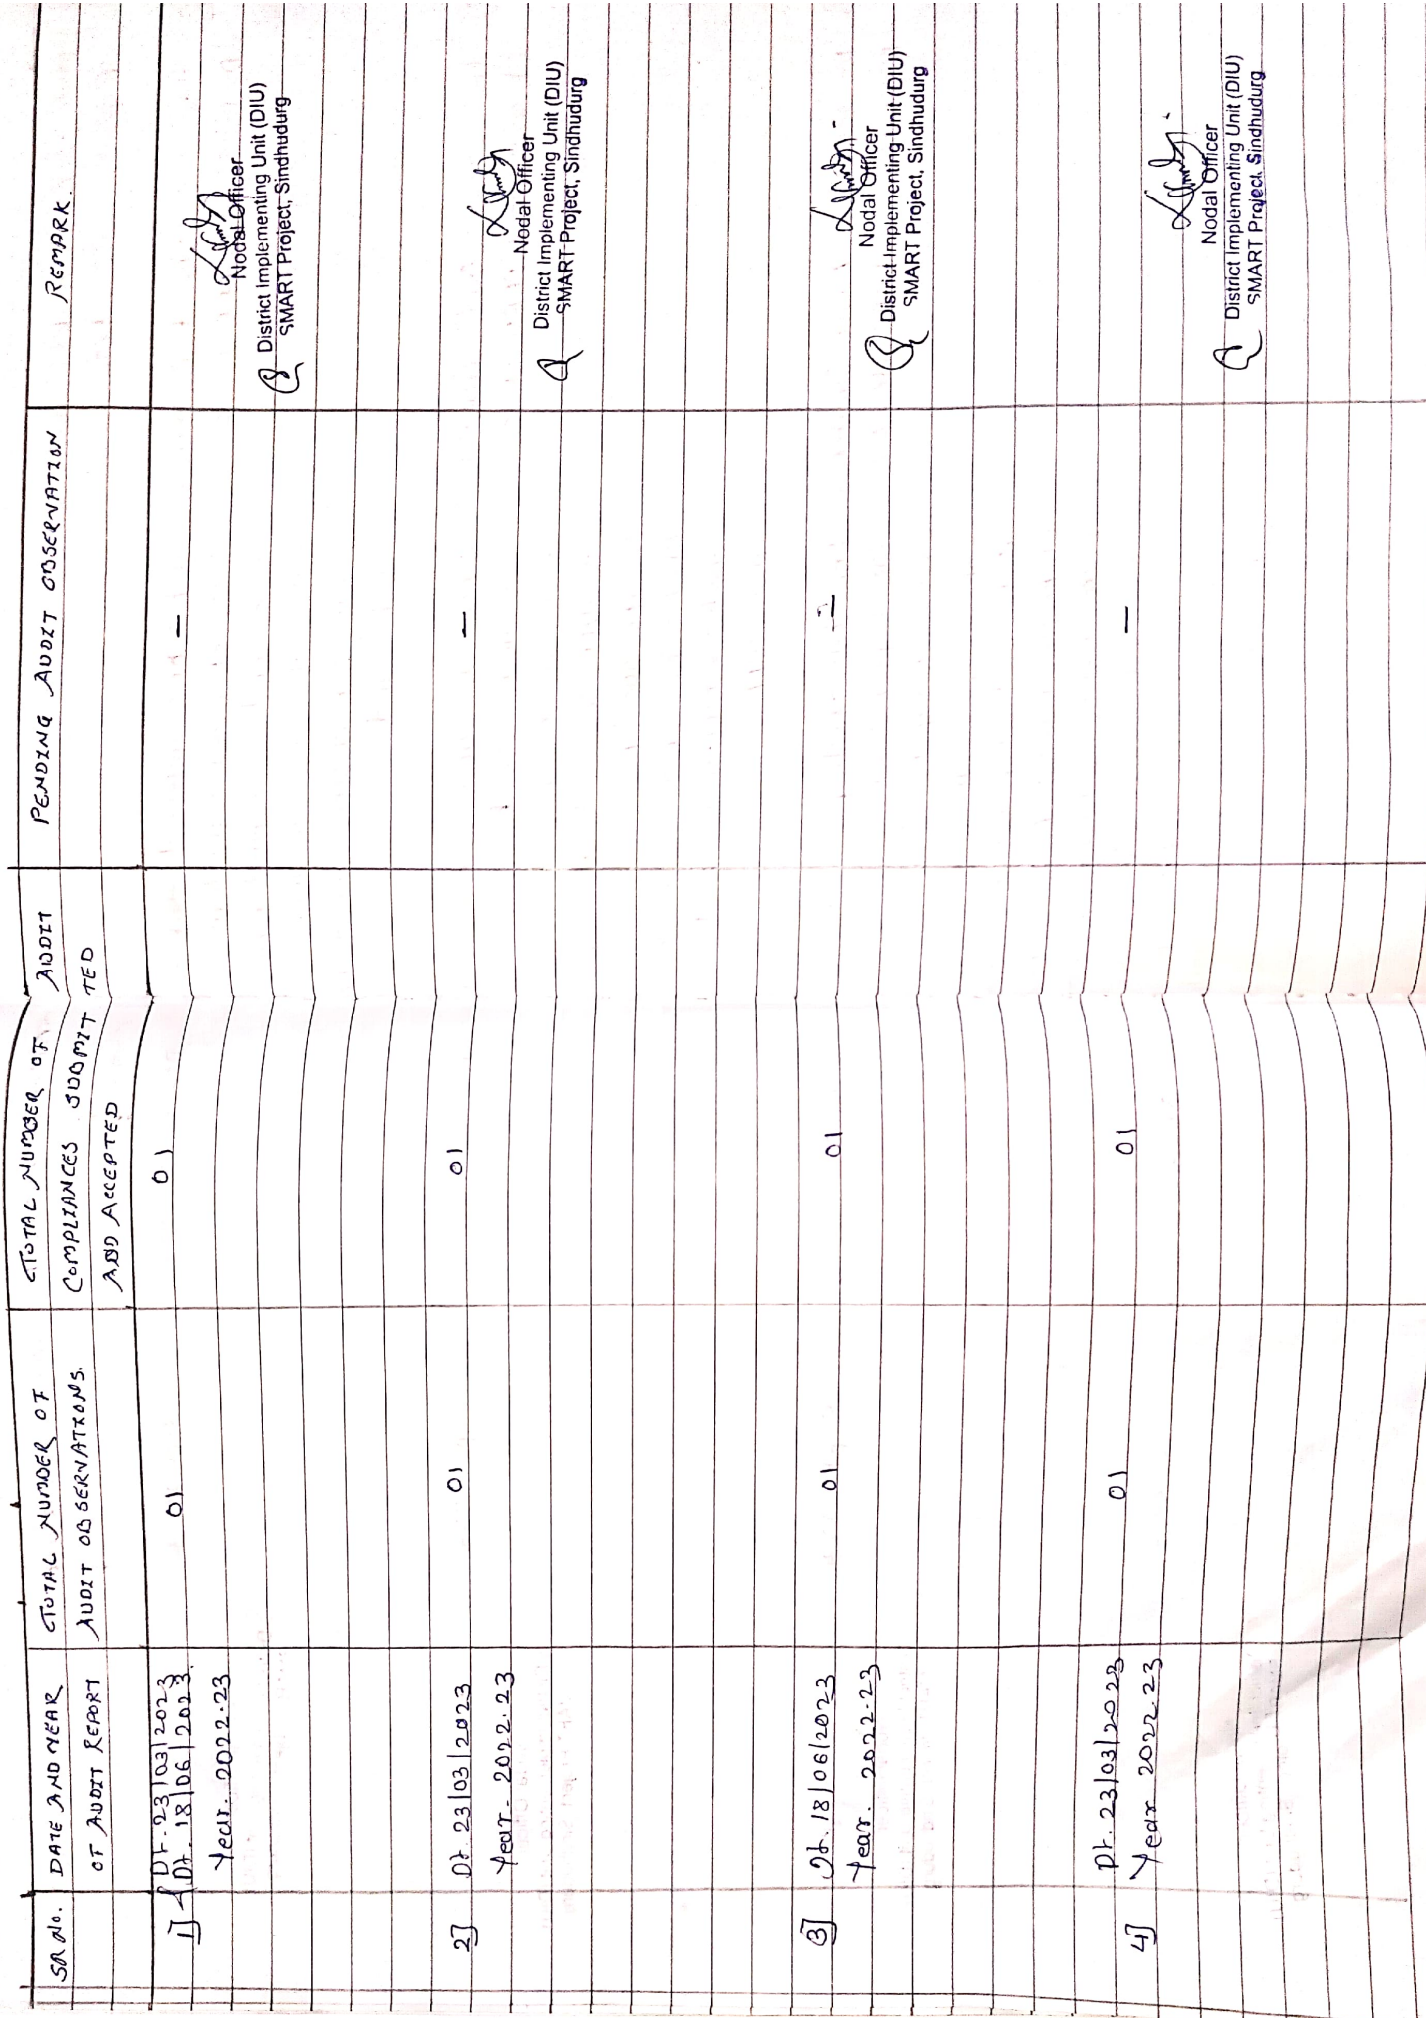 SR No.
DATE AND YEAR
OF AUDIT REPORT
TOTAL NUMBER OF
AUDIT OBSERVATIONS.
TOTAL NUMBER OF AUDIT
COMPLIANCES SUBMIT TED
AND ACCEPTED
PENDING AUDIT OBSERVATION
REMARK
1]
Dt. 23/03/2023
Dt. 18/06/2023.
Year. 2022-23
01
01
—
Nodal Officer
District Implementing Unit (DIU)
SMART Project, Sindhudurg
2]
Dt 23/03/2023
Year. 2022.23
01
01
—
Nodal Officer
District Implementing Unit (DIU)
SMART Project, Sindhudurg
3]
Dt. 18/06/2023
Year. 2022-23
01
01
—
Nodal Officer
District Implementing Unit (DIU)
SMART Project, Sindhudurg
4]
Dt. 23/03/2023
Year 2022.23
01
01
—
Nodal Officer
District Implementing Unit (DIU)
SMART Project, Sindhudurg